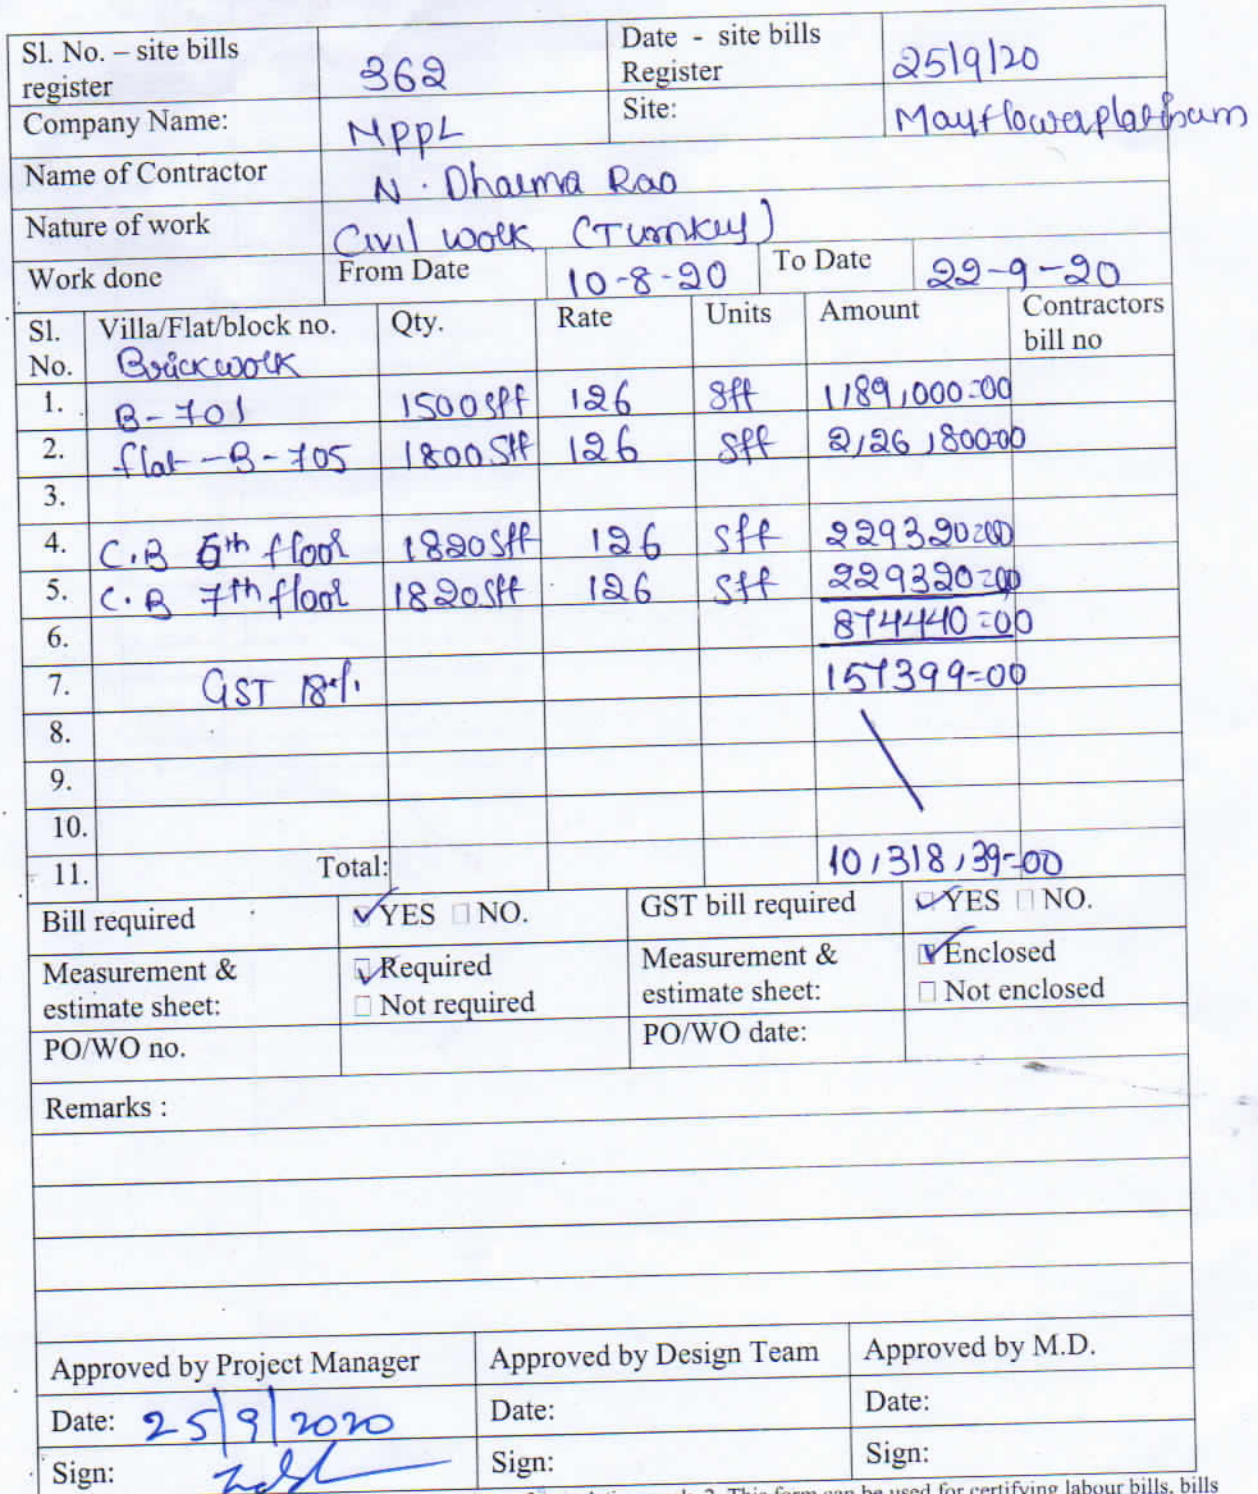 Sl. No. – site bills register 362 Date - site bills Register 25/9/20
Company Name: MPPL Site: Mayflower platinum
Name of Contractor N. Dharma Rao
Nature of work Civil work (Turnkey)
Work done From Date 10-8-20 To Date 22-9-20
Sl. No. Villa/Flat/block no. Qty. Rate Units Amount Contractors bill no
Brickwork
1. B-701 1500 sff 126 sff 1,89,000=00
2. flat-B-705 1800 sff 126 sff 2,26,800=00
3.
4. C.B 6th floor 1820 sff 126 sff 229320=00
5. C.B 7th floor 1820 sff 126 sff 229320=00
6. 874440=00
7. GST 18% 157399=00
8.
9.
10.
11. Total: 10,318,39=00
Bill required YES NO. GST bill required YES NO.
Measurement & estimate sheet: Required Not required Measurement & estimate sheet: Enclosed Not enclosed
PO/WO no. PO/WO date:
Remarks :
Approved by Project Manager Approved by Design Team Approved by M.D.
Date: 25/9/2020 Date: Date:
Sign: Sign: Sign:
This form can be used for certifying labour bills, bills